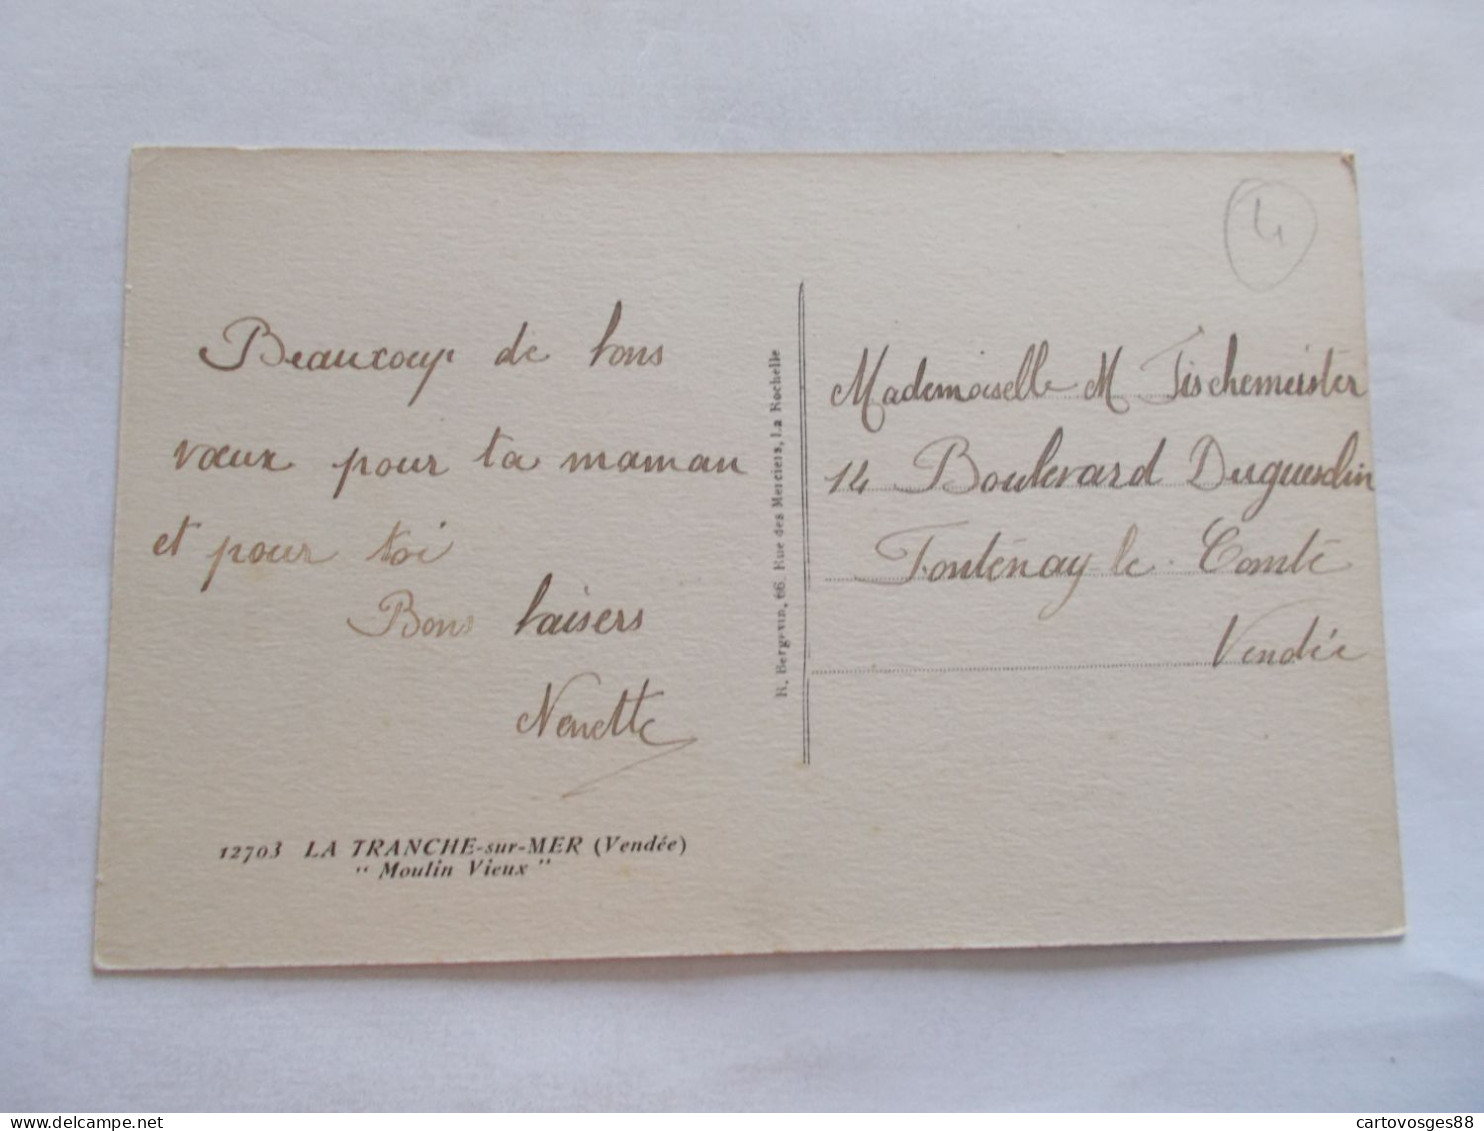 4
Beaucoup de bons
vœux pour ta maman
et pour toi
Bons baisers
Nenette
12703 LA TRANCHE-sur-MER (Vendée)
" Moulin Vieux "
R. Bergevin, 66, Rue des Merciers, La Rochelle
Mademoiselle M Fischemeister
14 Boulevard Duguesclin
Fontenay-le-Comte
Vendée
cartovosges88